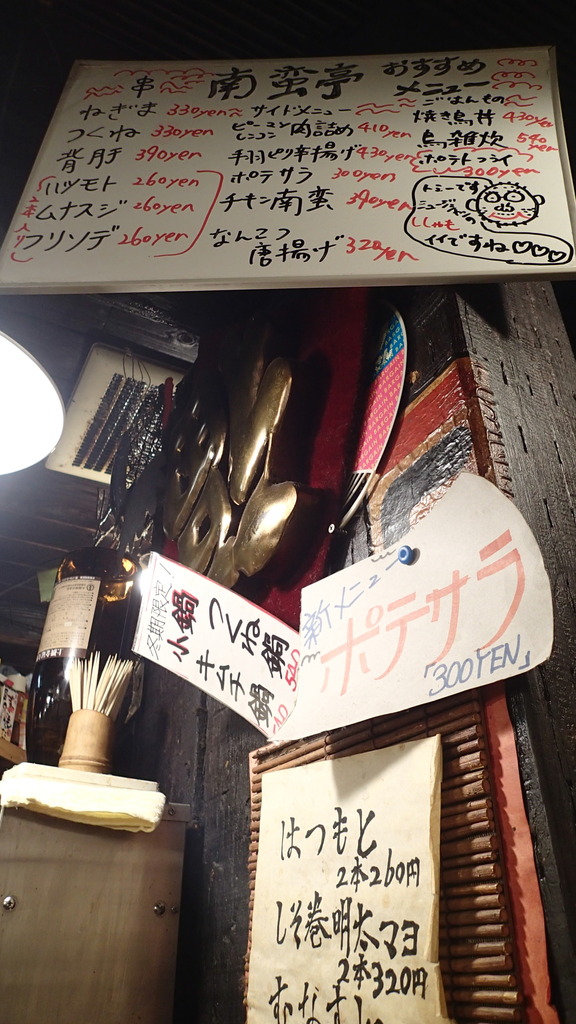 串 南蛮亭 おすすめメニュー
ねぎま 330yen
つくね 330yen
背肝 390yen
2本入り
ハツモト 260yen
ムナスジ 260yen
フリソデ 260yen
サイドメニュー
ピーマン 肉詰め 410yen
レンコン
手羽ピリ辛揚げ 430yen
ポテサラ 300yen
チキン南蛮 390yen
なんこつ
唐揚げ 320yen
ごはんもの
焼き鳥丼 430yen
鳥雑炊 540yen
ポテトフライ
300yen
トミーです
イイですね♡♡♡
冬期限定!
小鍋
つくね鍋
キムチ鍋
新メニュー
ポテサラ
「300YEN」
はつもと
2本260円
しそ巻明太マヨ
2本320円
むなすじ